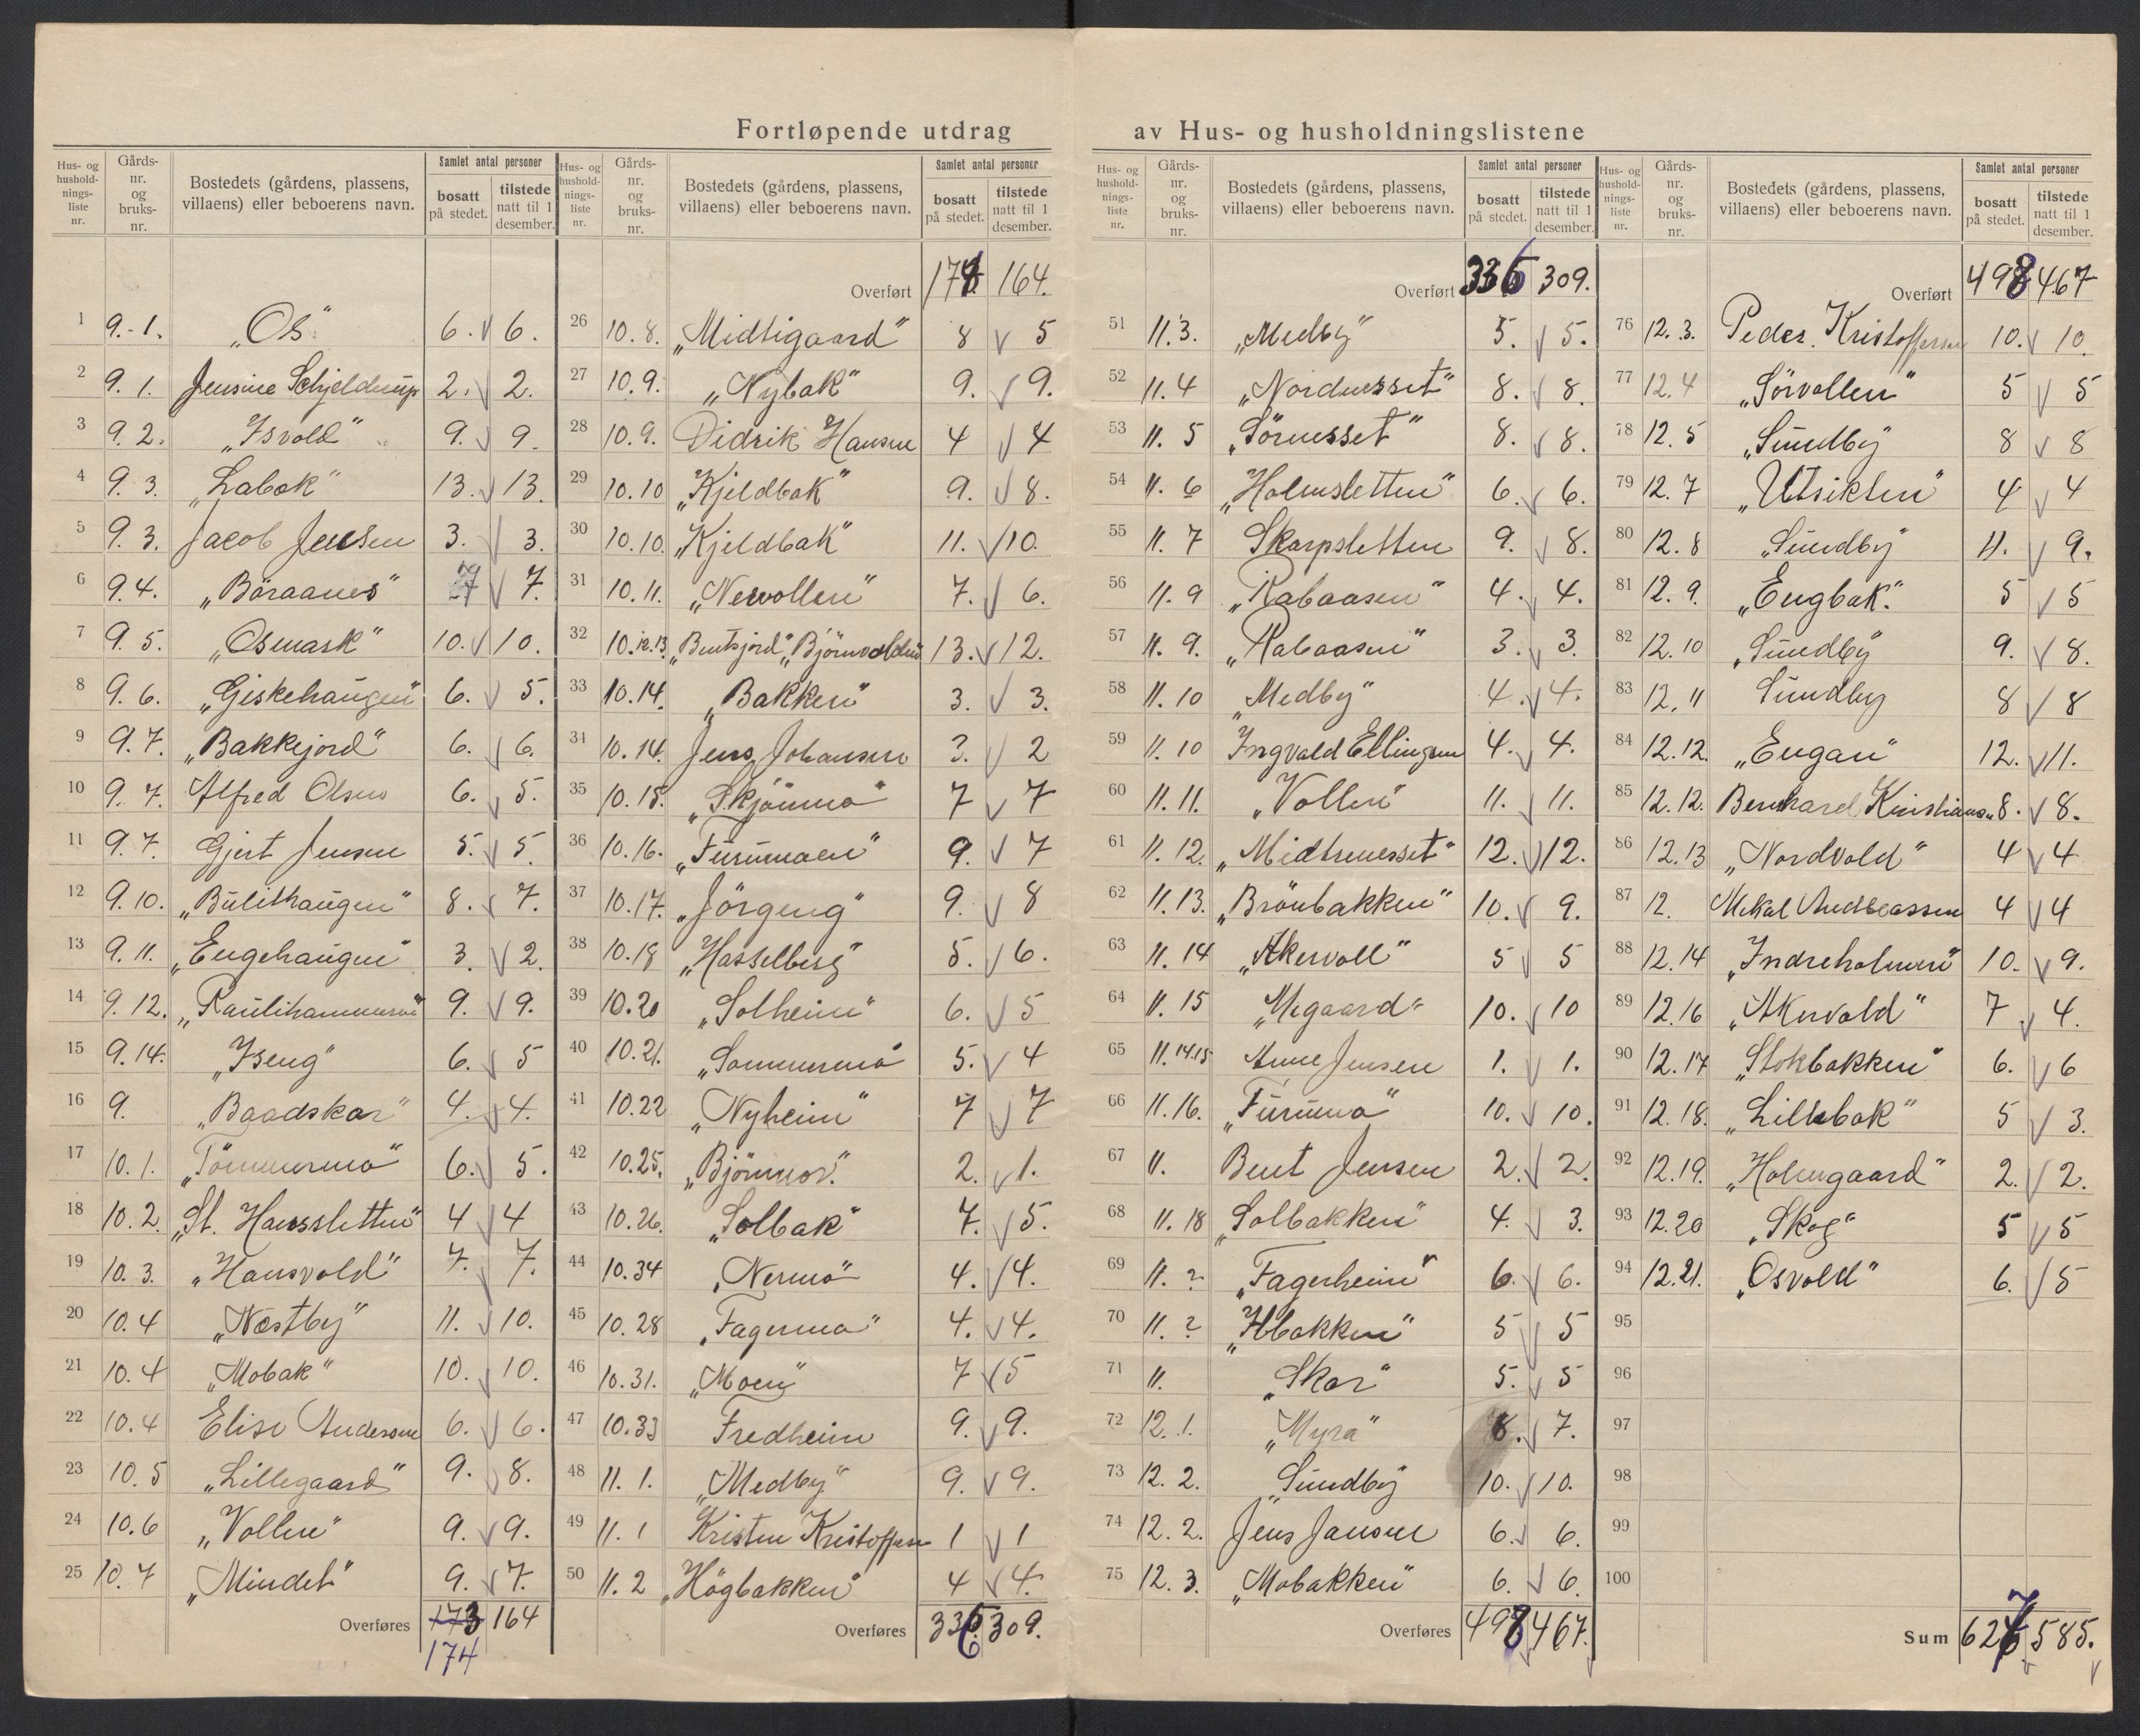 Fortløpende utdrag av Hus- og husholdningslistene
Hus- og husholdningsliste nr. Gårds-nr. og bruks-nr. Bostedets (gårdens, plassens, villaens) eller beboerens navn. Samlet antal personer bosatt på stedet. tilstede natt til 1 desember.
1 9.-1. „Os" 6. v 6.
2 9. 1. Jensine Schjelderup 2. v 2.
3 9. 2. „Isvold" 9. v 9.
4 9. 3. „Labak" 13. v 13.
5 9. 3. Jacob Jensen 3. v 3.
6 9.4. „Böraanes" 7 v 7.
7 9. 5. „Osmark" 10. v 10.
8 9. 6. „Giskehaugen" 6. v 5.
9 9. 7. „Bakkejord" 6. v 6.
10 9. 7. Alfred Olsen 6. v 5.
11 9. 7. Gjert Jensen 5. v 5.
12 9. 10. „Bülithaugen" 8. v 7.
13 9. 11. „Engehaugen" 3. v 2.
14 9. 12. „Raulihammeren" 9. v 9.
15 9. 14. „Iseng" 6. v 5
16 9. „Baadskar" 4. v 4.
17 10. 1. „Tömmermo" 6. v 5.
18 10. 2. „St. Hansslettten" 4 v 4
19 10. 3. „Hansvold" 7. v 7.
20 10. 4 „Næstby" 11. v 10.
21 10. 4 „Mobak" 10. v 10.
22 10. 4 Elise Andersen 6. v 6.
23 10. 5 „Lillegaard" 9. v 8.
24 10.6 „Vollen" 9. v 9.
25 10. 7 „Mindet" 9. v 7.
Overføres 173 164
174
Hus- og husholdningsliste nr. Gårds-nr. og bruks-nr. Bostedets (gårdens, plassens, villaens) eller beboerens navn. Samlet antal personer bosatt på stedet. tilstede natt til 1 desember.
Overført 174 164.
26 10. 8. „Midtigaard" 8 v 5
27 10. 9. „Nybak" 9. v 9.
28 10. 9. Didrik Hansen 4 v 4
29 10. 10 „Kjeldbak" 9. v 8.
30 10. 10. „Kjeldbak" 11. v 10.
31 10. 11. „Nervollen" 7. v 6.
32 10.12.13. „Bentsjord", „Björnvolden" 13. v 12.
33 10.14. „Bakken" 3. v 3.
31 10. 14. Jens Johansen 3. v 2
35 10. 15. „Skjönmo" 7 v 7
36 10. 16. „Furumoen" 9. v 7
37 10. 17. „Jörgeng" 9. v 8
38 10. 18 „Hasselberg" 5. v 6.
39 10. 20 „Solheim" 6. v 5
40 10. 21. „Sommermo" 5. v 4
41 10.22 „Nyheim" 7 v 7
42 10.25. „Björnmor." 2. v 1.
43 10. 26. „Solbak" 7. v 5.
44 10.34 „Nermo" 4. v 4.
45 10. 28 „Fagermo" 4. v 4.
46 10. 31. „Moen" 7 v 5
47 10. 33 Fredheim 9. v 9.
48 11. 1. „Medby" 9. v 9.
49 11. 1 Kristen Kristoffersen 1 v 1
50 11. 2 „Högbakken" 4 v 4.
Overføres 336 309.
Hus- og husholdningsliste nr. Gårds-nr. og bruks-nr. Bostedets (gårdens, plassens, villaens) eller beboerens navn. Samlet antal personer bosatt på stedet. tilstede natt til 1 desember.
Overført 336 309.
51 11.3. „Medby" 5. v 5.
52 11. 4 „Nordnesset" 8. v 8.
53 11. 5 „Sörnesset" 8. v 8.
54 11. 6 „Holmsletten" 6. v 6.
55 11. 7 Skarpsletten 9. v 8.
56 11. 9 „Rabaasen" 4. v 4.
57 11. 9. „Rabaasen" 3. v 3.
58 11. 10 „Medby" 4. v 4.
59 11. 10 Ingvald Ellingsen 4. v 4.
60 11. 11. „Vollen" 11. v 11.
61 11. 12. „Midtrenesset" 12. v 12.
62 11. 13. „Brönbakken" 10. v 9.
63 11. 14 „Akervoll" 5 v 5
64 11. 15 „Megaard" 10. v 10
65 11.14.15 Anne Jensen 1. v 1.
66 11.16. „Furumo" 10. v 10.
67 11. Bent Jensen 2. v 2.
68 11. 18 „Solbakken" 4. v 3.
69 11. ? „Fagerheim" 6. v 6.
70 11. ? 5 v 5
71 11. „Skar" 5. v 5
72 12. 1. „Myra" 8. v 7.
73 12. 2. „Sundby" 10. v 10.
74 12. 2. Jens Jansen 6. v 6.
75 12. 3. „Mobakken" 6. v 6.
Overføres 498 467.
Hus- og husholdningsliste nr. Gårds-nr. og bruks-nr. Bostedets (gårdens, plassens, villaens) eller beboerens navn. Samlet antal personer bosatt på stedet. tilstede natt til 1 desember.
Overført 498 467
76 12. 3. Peder. Kristoffersen 10. v 10.
77 12. 4 „Sörvollen" 5 v 5
78 12. 5 „Sundby" 8 v 8
79 12. 7 „Utsikten" 4 v 4
80 12. 8 „Sundby" 11. v 9.
81 12. 9. „Engbak." 5 v 5
82 12. 10 „Sundby" 9. v 8.
83 12. 11 Sundby 8 v 8
84 12.12. „Engan" 12. v 11.
85 12. 12. Bernhard Kristians. 8. v 8.
86 12.13 „Nordvold" 4 v 4
87 12. Mikal Andreassen 4 v 4
88 12.14 „Indreholmen" 10. v 9.
89 12.16 „Akervold" 7 v 4.
90 12.17 „Stokbakken" 6. v 6
91 12.18. „Lillebak" 5 v 3.
92 12.19. „Holmgaard" 2. v 2.
93 12.20 „Skog" 5 v 5
94 12.21. „Osvold" 6. v 5
95
96
97
98
99
100
Sum 627 585.